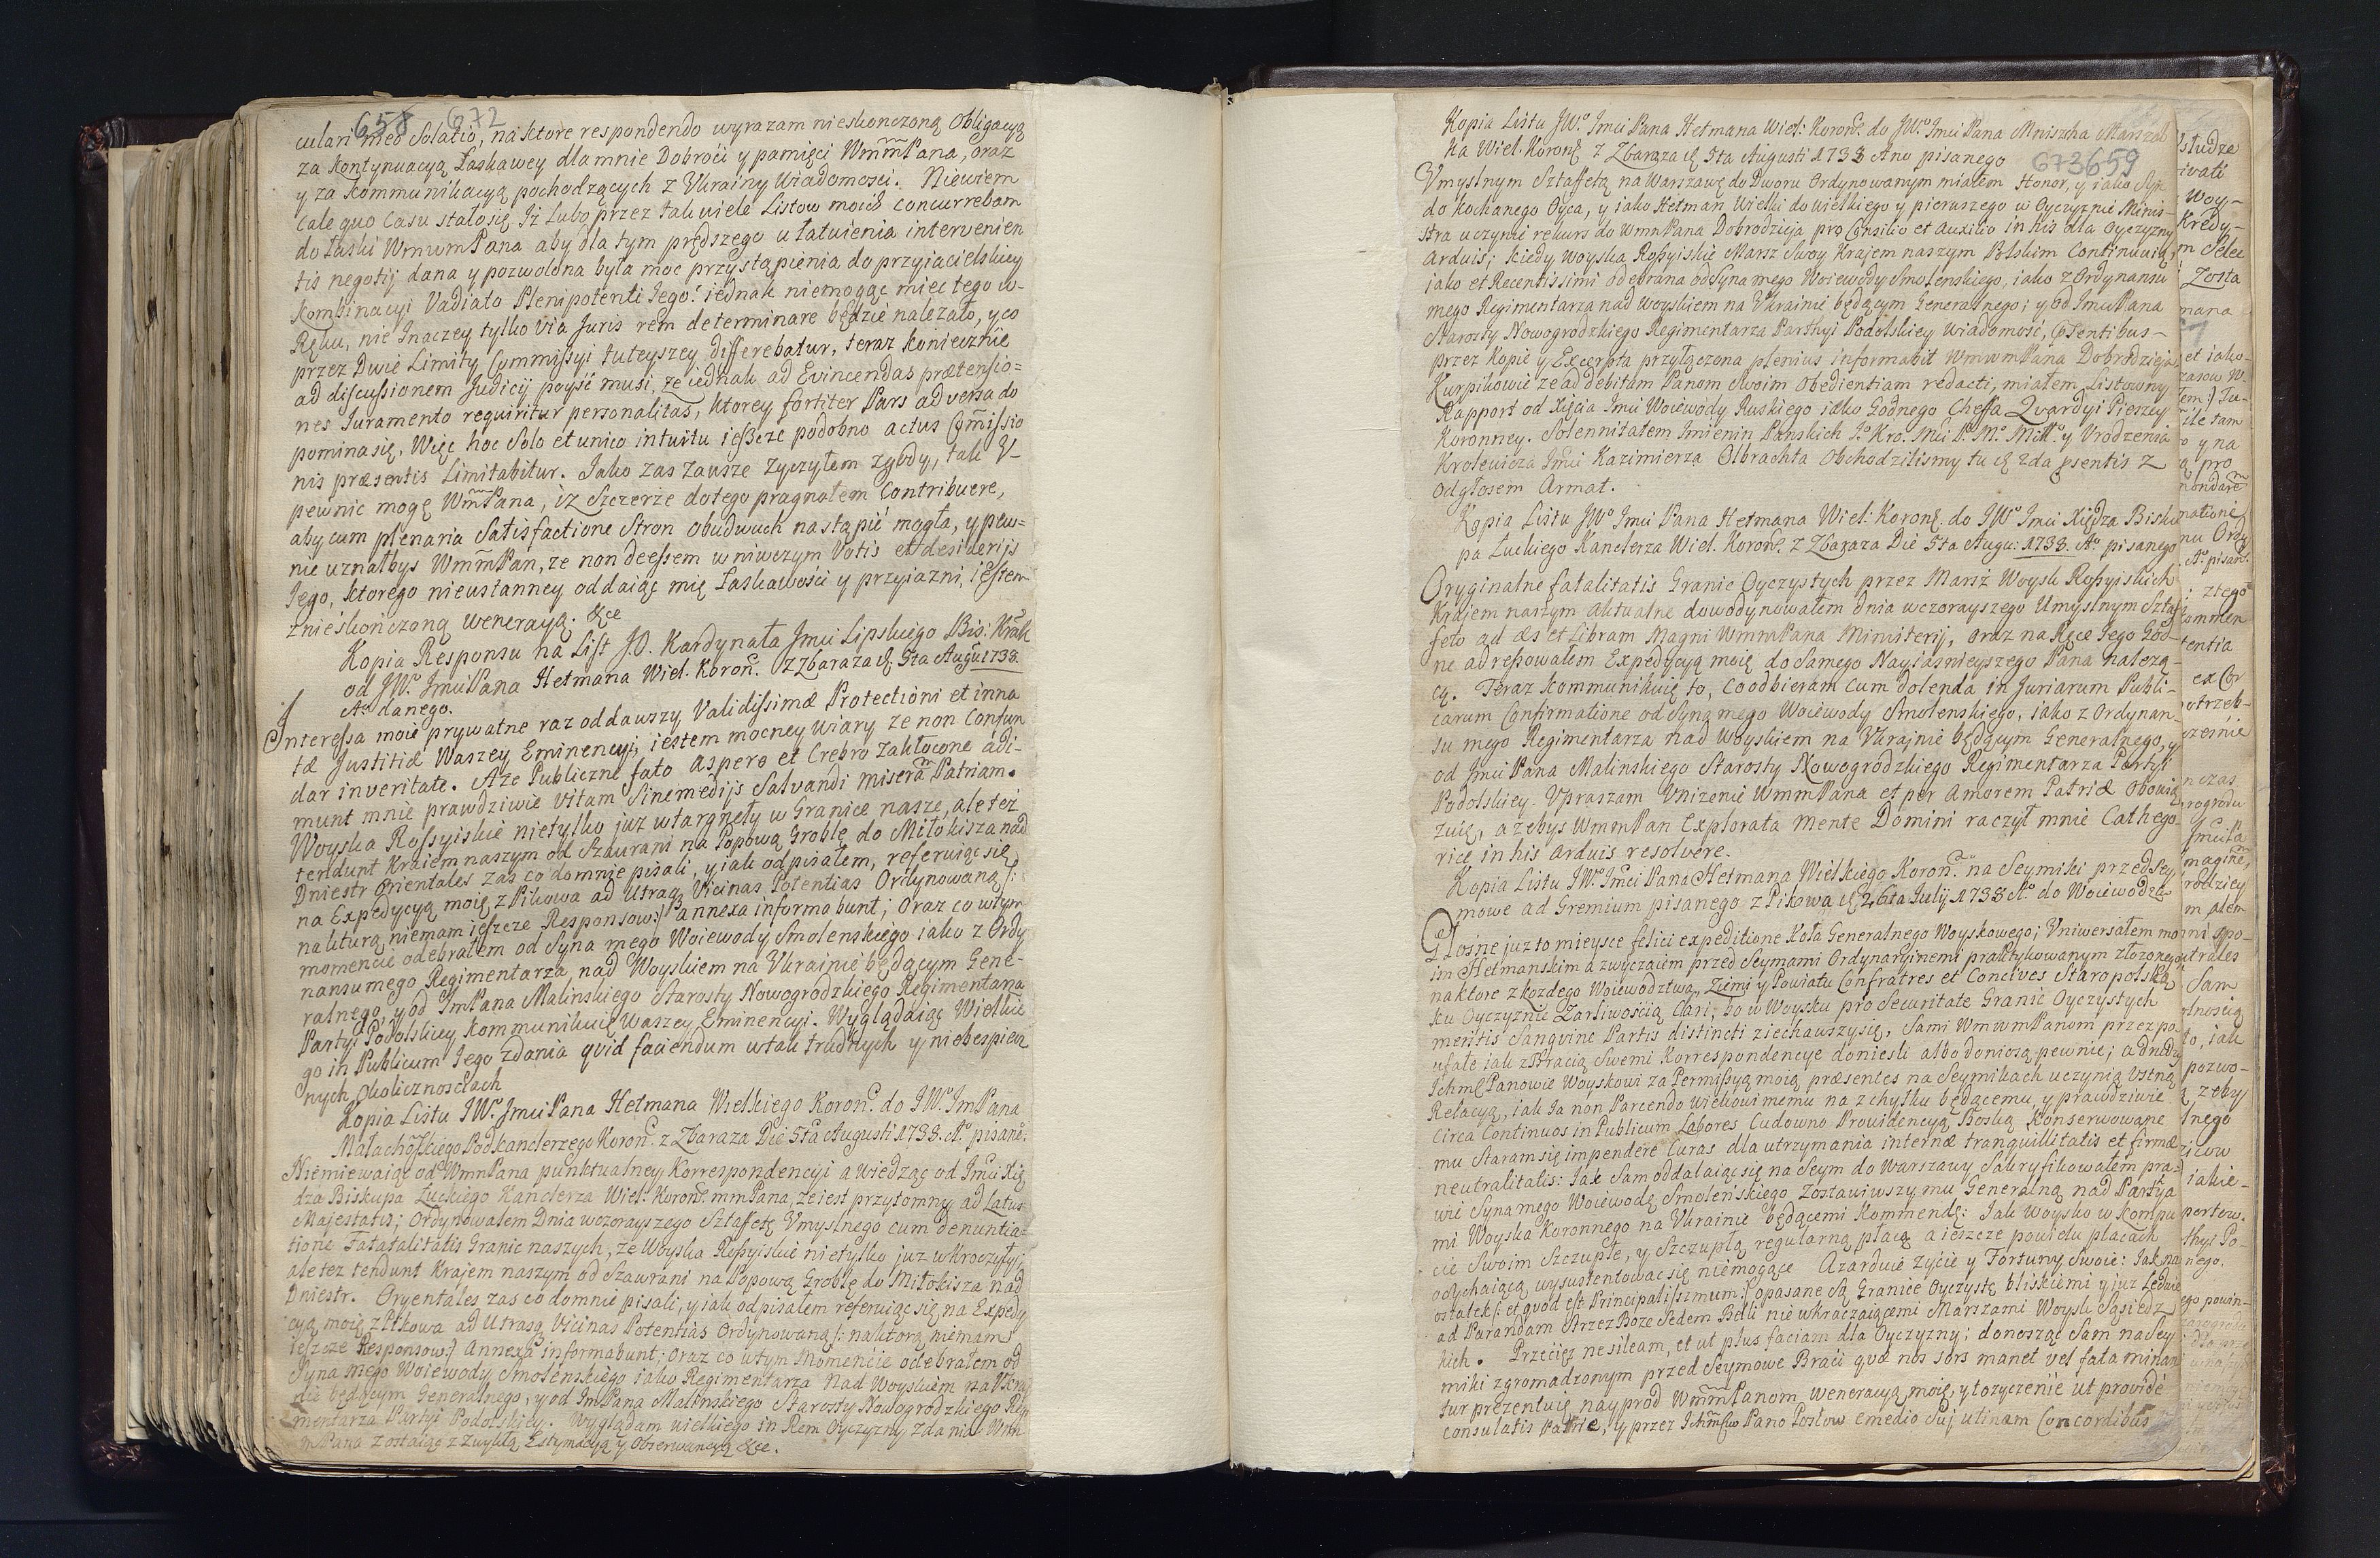 658 672
culari meo Solatio, na ktore respondendo wyrazam nieskonczoną Obligacyą
za kontynuacyą Łaskawey dla mnie Dobroci y pamięci WmmPana, oraz
y za kommunikacyą pochodzących z Ukrainy Wiadomosci. Niewiem
cale quo casu stało się, Iż Lubo przez tak wiele Listow moich concurrebam
do Łaski WmwmPana aby dla tym prędszego ułatwienia intervenien
tis negotij dana y pozwolona była moc przystąpienia do przyiacielskiey
kombinacyi Vadiato Plenipotenti Jego: iednak niemogąc miec tego w-
Ręku, nie Inaczey tylko via Juris rem determinare będzie nalezało, y co
przez Dwie Limity Commissyi tuteyszey differebatur, teraz koniecznie
ad discussionem Judicij poyść musi, ze iednak ad Evincendas prætensio=
nes Juramento requiritur personalitas, ktorey fortiter Pars adversa do
pomina się, Więc hoc Solo et unico intuitu ieszcze podobno actus Commissio
nis præsentis Limitabitur. Jako zas zawsze zyczyłem zgody, tak U-
pewnic mogę WmPana, iz Szczerze do tego pragnąłem Contribuere,
aby cum plenaria Satisfactione Stron obudwuch nastąpić mogła, y pew=
nie uznałbys WmmPan, ze non deessem w niwczym Votis et desiderijs
Jego, ktorego nieustanney oddaiąc mię Łaskawości y przyiazni, iestem
znieskończoną weneracyą. &ce
Kopia Responsu na List J.O. Kardynała Jmci Lipskiego Bis: Krak
od JW.o JmciPana Hetmana Wiel. Koron. z Zbaraza d. 5ta Augu 1738.
Ao danego.
Interessa moie prywatne raz oddawszy Validissimæ Protectioni et inna
tæ Justitiæ Waszey Eminencyi, iestem mocney wiary ze non Confun
dar in veritate. Aze Publiczne fato aspero et Crebro zakłocone adi-
munt mnie prawdziwie vitam Sine medijs Salvandi miseram Patriam.
Woyska Rossyiskie nietylko juz wtargnęły w Granice nasze, ale też
tendunt Kraiem naszym od Szaurani na Popową Groblę do Miłokisza nad
Dniestr Orientales zas co do mnie pisali, y iak odpisałem, referuiąc się
na Expedycyą moię z Pikowa ad utrasq Vicinas Potentias Ordynowaną /:
na ktorą niemam ieszcze Responsow:/ annexa informabunt; Oraz co w tym
momencie odebrałem od Syna mego Woiewody Smolenskiego iako z Ordy
nansu mego Regimentarza nad Woyskiem na Ukrainie będącym Gene-
ralnego, y od ImPana Malinskiego Starosty Nowogrodzkiego Regimentarza
Partyi Podolskiey kommunikuię Waszey Eminencyi. Wyglądaiąc Wielkie
go in Publicum Jego zdania quid faciendum w tak trudnych y niebespiecz
nych okolicznosciach
Kopia Listu JW.o JmciPana Hetmana Wielkiego Koron. do JW.o ImPana
Małachowskiego Podkanclerzego Koron. z Zbaraza Die 5ta Augusti 1738. Ao pisane:
Niemiewaiąc od WmnPana punktualney Korrespondencyi a wiedząc od Jmci Xię
dza Biskupa Łuckiego Kanclerza Wiel. Koron mmPana, ze iest przytomny ad Latus
Majestatis; Ordynowałem Dnia wczorayszego Sztaffetę Umyslnego cum denuntia-
tione Fatatalitatis Granic naszych, ze Woyska Rossyiskie nietylko juz wkroczyły,
ale tez tendunt Krajem naszym od Szawrani na Popową Groblę do Miłokisza nad
Dniestr. Oryentales zas co do mnie pisali, y iak odpisałem referuiąc się na Expedy
cyą moię z Pikowa ad Utrasq Vicinas Potentias Ordynowaną /: na ktorą niemam
ieszcze Responsow:/ Annexa informabunt; oraz co w tym Momencie odebrałem od
Syna mego Woiewody Smolenskiego iako Regimentarza Nad Woyskiem na Ukrai
nie będącym Generalnego, y od ImPana Malinskiego Starosty Nowogrodzkiego Regi
mentarza Partyi Podolskiey. Wyglądam wielkiego in Rem Oyczyzny Zdania Wm
mPana zostaiąc z zwykłą Estymacyą y Obserwancyą &ce.
Kopia Listu JW.o Jmci Pana Hetmana Wiel: Koron. do JW.o Jmci Pana Mniszcha Marszał
ka Wiel. Koron z Zbaraza d. 5ta Augusti 1738 Ano pisanego
673 659
Umyslnym Sztaffetą na Warszawę do Dworu Ordynowanym miałem Honor, y iako Syn
do kochanego Oyca, y iako Hetman Wielki do wielkiego y pierwszego w Oyczyznie Minis-
stra uczynic rekurs do WmnPana Dobrodzieja pro Consilio et Auxilio in his dla Oyczyzny
Arduis; kiedy Woyska Rossyiskie Marsz Swoy Krajem naszym Polskim Continuuią,
jako et Recentissimi odebrana od Syna mego Woiewody Smolenskiego, iako z Ordynansu
mego Regimentarza nad woyskiem na Ukrainie będącym Generalnego; y od JmciPana
Starosty Nowogrodzkiego Regimentarza Parthyi Podolskiey wiadomość, Psentibus-
przez kopie y Excerpta przyłączona plenius informabit WmwmPana Dobrodzieja
Kurpikowie ze ad debitam Panom Swoim obedientiam redacti, miałem Listowny
Rapport od Xięcia Imci Woiewody Ruskiego iako Godnego Cheffa Qvardyi Pieszey
Koronney. Solennitatem Imienin Panskich Jo. Kro. Mci P. M. Mill.o y Urodzenia
Krolewicza Imci Kazimierza Olbrachta Obchodzilismy tu d. 2da psentis z
Odgłosem Armat.
Kopia Listu JWo Imci Pana Hetmana Wiel: Koron. do JW.o Imci Xiędza Bisku
pa Łuckiego Kanclerza Wiel. Koron. z Zbaraza Die 5ta Augu: 1738. Ao. pisanego
Oryginalne fatalitatis Granic Oyczystych przez Marsz Woysk Rossyiskich
Krajem naszym aktualne dowody nowałem dnia wczorayszego Umyslnym Szta
feto ad æs et Libram Magni WmmPana Ministerij, oraz na Ręce Jego God-
ne adressowałem Expedycyą moię do Samego Nayiasnieyszego Pana nalezą-
cą. Teraz kommunikuię to, co odbieram cum dolenda in Juriarum Publi-
carum Confirmatione od Syna mego Woiewody Smolenskiego, iako z Ordynan-
su mego Regimentarza nad Woyskiem na Ukrajnie będącym Generalnego, y
od Jmci Pana Malinskiego Starosty Nowogrodzkiego Regimentarza Partyi
Podolskiey. Upraszam Unizenie WmmPana et per amorem Patriæ obowią
zuię, azebys WmmPan Explorata Mente Domini raczył mnie Cathego
rice in his arduis resolvere.
Kopia Listu JW.o Imci Pana Hetmana Wielkiego Koron. na Seymiki przed Sey
mowe ad Gremium pisanego z Pikowa d. 26ta Julij 1738 Ao. do Woiewodztw
Głośne juz to mieysce felici expeditione Koła Generalnego Woyskowego; Uniwersałem mo
im Hetmanskim a zwyczaiem przed Seymami Ordynaryinemi praktykowanym złozonego
na ktore z kozdego Woiewodztwa, Ziemi y Powiatu Confratres et Concives Staropolską
ku Oyczyznie Zarliwoscią Clari; bo w Woysku pro Securitate Granic Oyczystych
meritis Sanguine Partis distincti ziechawszy się, Sami WmwmPanom przez po
ufałe iak z Bracią Swemi Korrespondencye doniesli albo doniosą pewnie; a drudzy
Ichm Panowie Woyskowi za Permissyą moią præsentes na Seymikach uczynią Ustną
Relacyą, iak Ja non Parcendo wiekowi memu na zchyłku będącemu y prawdziwie
Circa Continuos in Publicum Labores Cudowno Providencyą Boską Konserwowane
mu Staram się impendere Curas dla utrzymania internæ tranquillitatis et firmæ
neutralitatis: Jak Sam oddalaiąc się na Seym do Warszawy Sakryfikowałem pra-
wie Syna mego Woiewodę Smoleńskiego Zostawiwszy mu Generalną nad Partyia
mi Woyska Koronnego na Ukrainie będącemi Kommendę: Jak Woysko w Kompu
cie Swoim Szczupłe, y Szczupłą regularną płacą a ieszcze po wielu placach
odychaiącą wysustentowac się niemogące Azarduie zycie y Fortuny Swoie: Jak na
ostatek /: et quod est Principalissimum :/ opasane Są Granice Oyczystę bliskiemi y juz Ledwie
ad Parandam Strzez Boze Sedem Belli nie wkraczaiącemi Marszami Woysk Sąsiedz
kich. Przeciez nesileam, et ut plus faciam dla Oyczyzny; donosząc Sam na Sey
miki zgromadzonym przed Seymowe Braci quæ nos sors manet vel fata minan
tur prezentuię nayprod WmmPanom weneracyą moię, y to zyczenie ut providé
consulatis Patriæ, y przez Ichm Pano Posłow emedio Suj utinam Concordibus